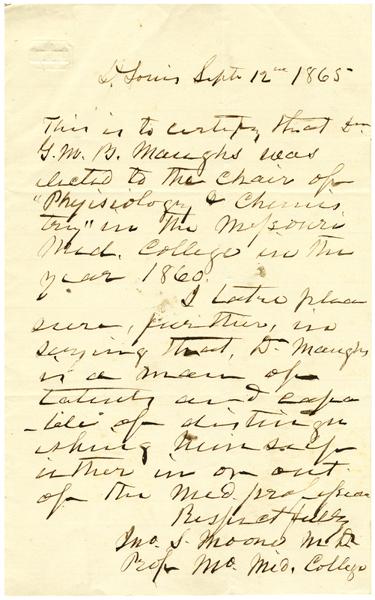 St. Louis Sept 12th 1865
This is to certify that Dr
G. M. B. Maughs was
elected to the chair of
"Physiology & Chemis
try" in the Missouri
Med. College in the
year 1860.
I take plea
sure, further, in
saying that, Dr Maughs
is a man of
talents and capa
-ble of distingu
ishing himself
either in or out
of the Med. profession
Respectfully
Jno. S. Moore M. D.
Prof Mo. Med. College